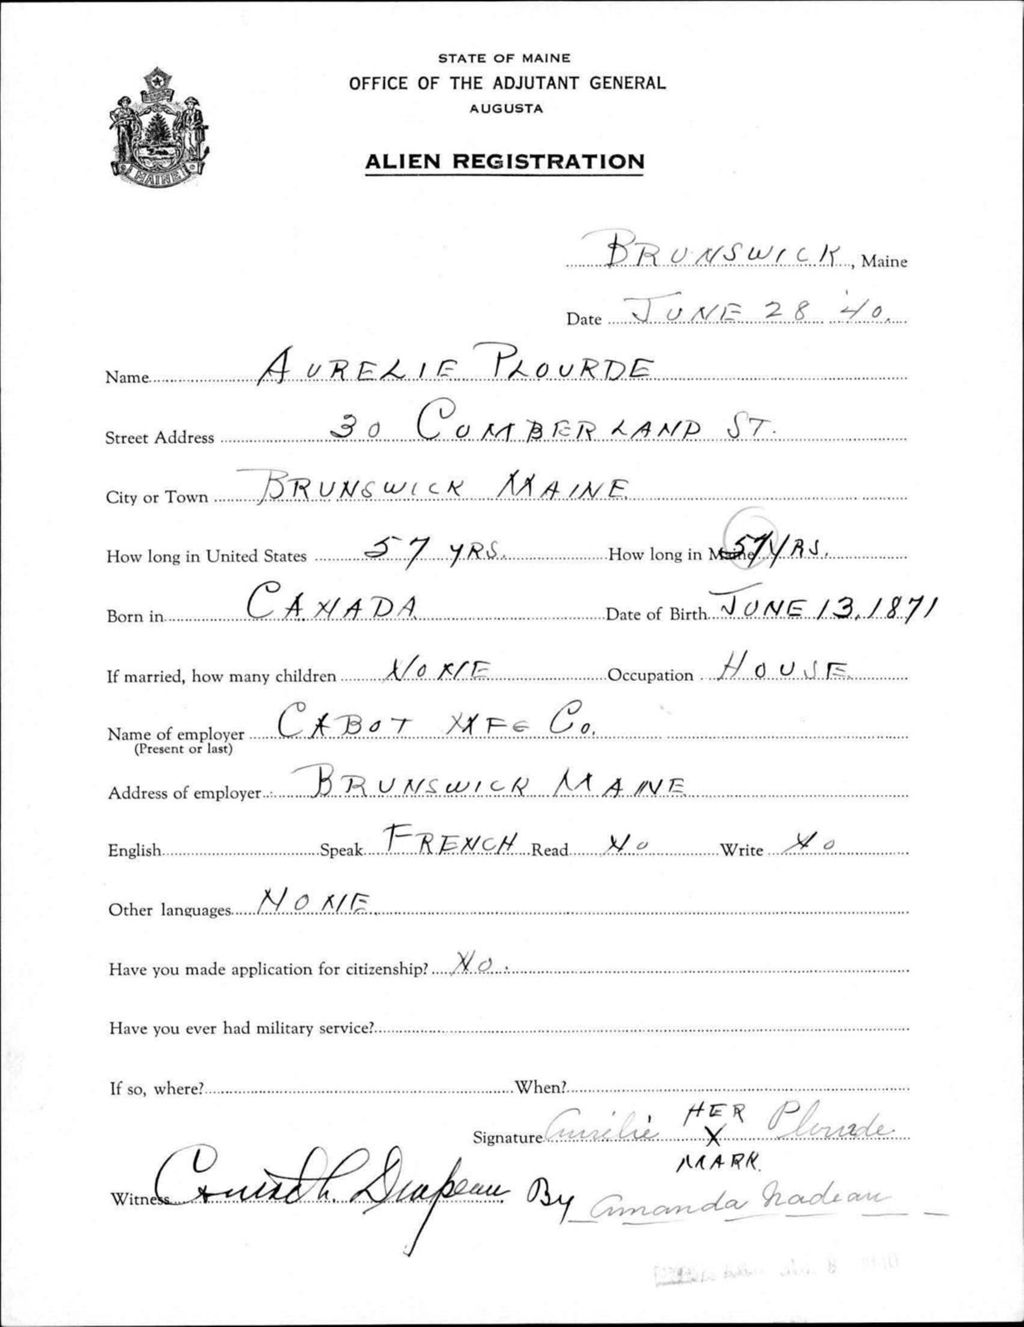 STATE OF MAINE
OFFICE OF THE ADJUTANT GENERAL
AUGUSTA
ALIEN REGISTRATION
MAINE
BRUNSWICK, Maine
Date JUNE 28 '40.
Name AURELIE PLOURDE
Street Address 30 CUMBERLAND ST.
City or Town BRUNSWICK MAINE
How long in United States 57 YRS. How long in Maine 57 YRS.
Born in CANADA Date of Birth JUNE 13, 1871
If married, how many children NONE Occupation HOUSE
Name of employer CABOT MFG CO.
(Present or last)
Address of employer BRUNSWICK MAINE
English Speak FRENCH Read NO Write NO
Other languages NONE
Have you made application for citizenship? NO.
Have you ever had military service?
If so, where? When?
Signature Aurelie HER Plourde
X
MARK
Witness Drapeau By Amanda Nadeau